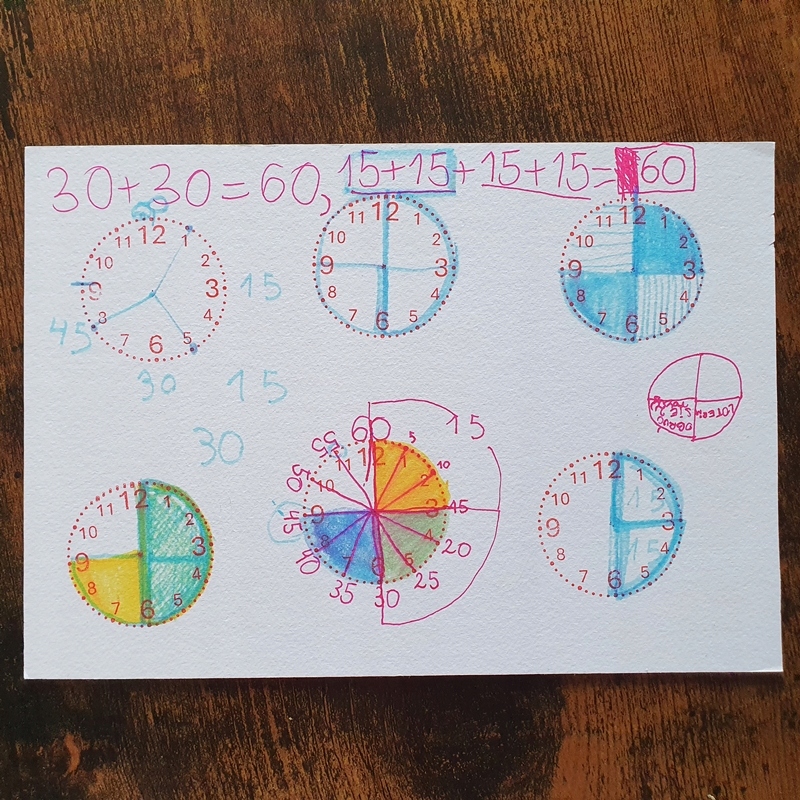 30+30=60, 15+15+15+15=60
60
12 1 2 3 4 5 6 7 8 9 10 11
15
45
30
15
30
12 1 2 3 4 5 6 7 8 9 10 11
12 1 2 3 4 5 6 7 8 9 10 11
12 1 2 3 4 5 6 7 8 9 10 11
60 5 10 15 20 25 30 35 40 45 50 55
12 1 2 3 4 5 6 7 8 9 10 11
15
12 1 2 3 4 5 6 7 8 9 10 11
15
15